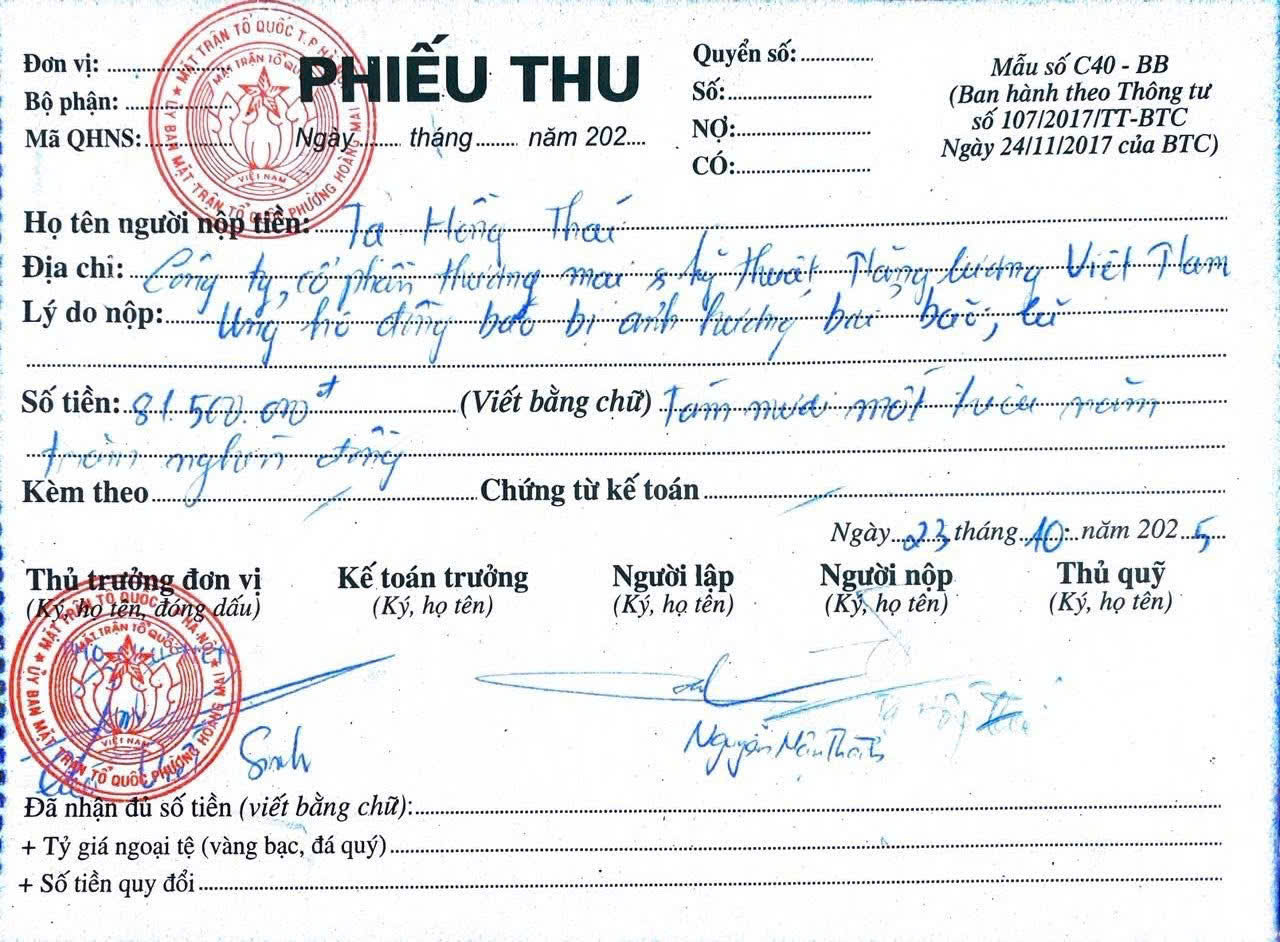 Đơn vị: ............
Bộ phận: ............
Mã QHNS: ............
PHIẾU THU
Ngày........ tháng........ năm 202....
Quyển số: ............
Số: ............
NỢ: ............
CÓ: ............
Mẫu số C40 - BB
(Ban hành theo Thông tư
số 107/2017/TT-BTC
Ngày 24/11/2017 của BTC)
MẶT TRẬN TỔ QUỐC
VIỆT NAM
ỦY BAN MẶT TRẬN TỔ QUỐC PHƯỜNG HOÀNG MAI
Họ tên người nộp tiền: Tạ Hồng Thái
Địa chỉ: Công ty cổ phần thương mại & kỹ thuật Năng lượng Việt Nam
Lý do nộp: Ủng hộ đồng bào bị ảnh hưởng bởi bão, lũ
Số tiền: 81.500.000đ (Viết bằng chữ) Tám mươi mốt triệu năm
trăm nghìn đồng
Kèm theo ............ Chứng từ kế toán ............
Ngày 23 tháng 10 năm 2025
Thủ trưởng đơn vị Kế toán trưởng Người lập Người nộp Thủ quỹ
(Ký, họ tên, đóng dấu) (Ký, họ tên) (Ký, họ tên) (Ký, họ tên) (Ký, họ tên)
MẶT TRẬN TỔ QUỐC T.P HÀ NỘI
MẶT TRẬN TỔ QUỐC
VIỆT NAM
ỦY BAN MẶT TRẬN TỔ QUỐC PHƯỜNG HOÀNG MAI
Sinh
Nguyễn
Tạ Hồng Thái
Đã nhận đủ số tiền (viết bằng chữ): ............
+ Tỷ giá ngoại tệ (vàng bạc, đá quý) ............
+ Số tiền quy đổi ............